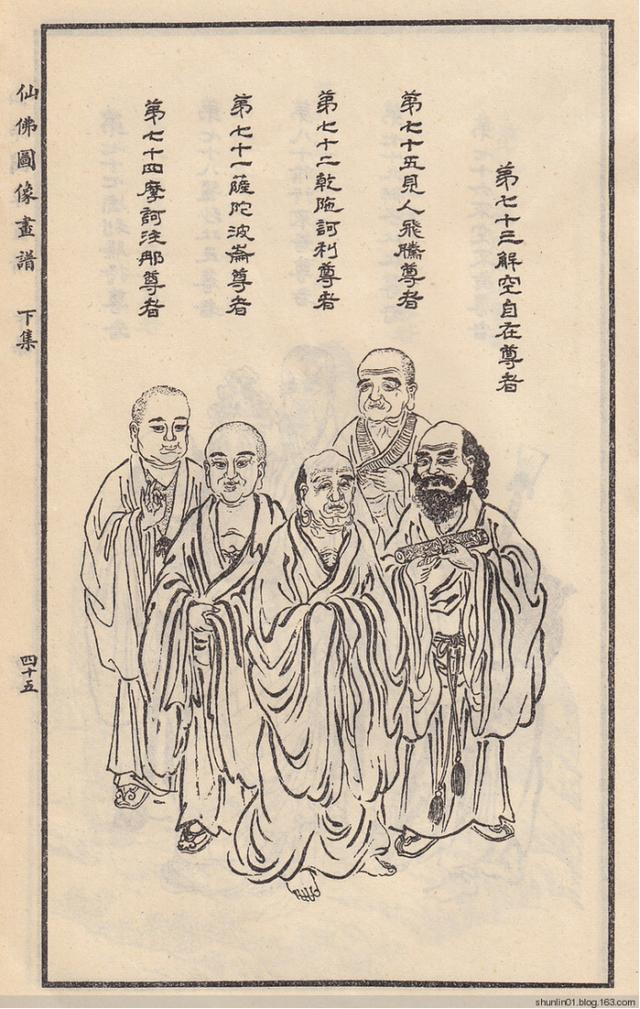 第七十三解空自在尊者
第七十五見人飛騰尊者
第七十二乾陁訶利尊者
第七十一薩陀波崙尊者
第七十四摩訶注那尊者
仙佛圖像畫譜 下集
四十五
shunlin01.blog.163.com